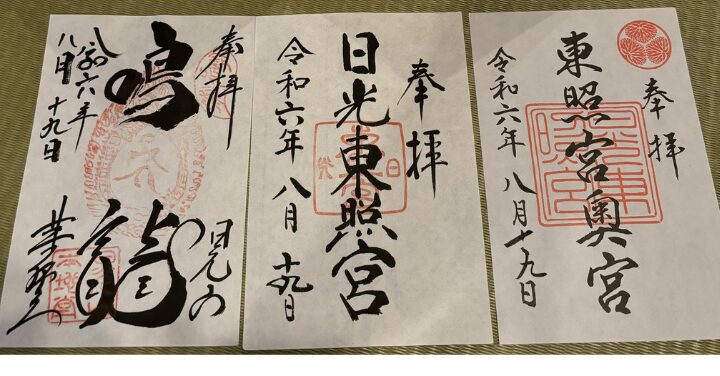 奉拝
東照宮奥宮
令和六年八月十九日
奉拝
日光東照宮
令和六年八月十九日
奉拝
日光の
鳴龍
令和六年
八月十九日
薬師堂
本地堂